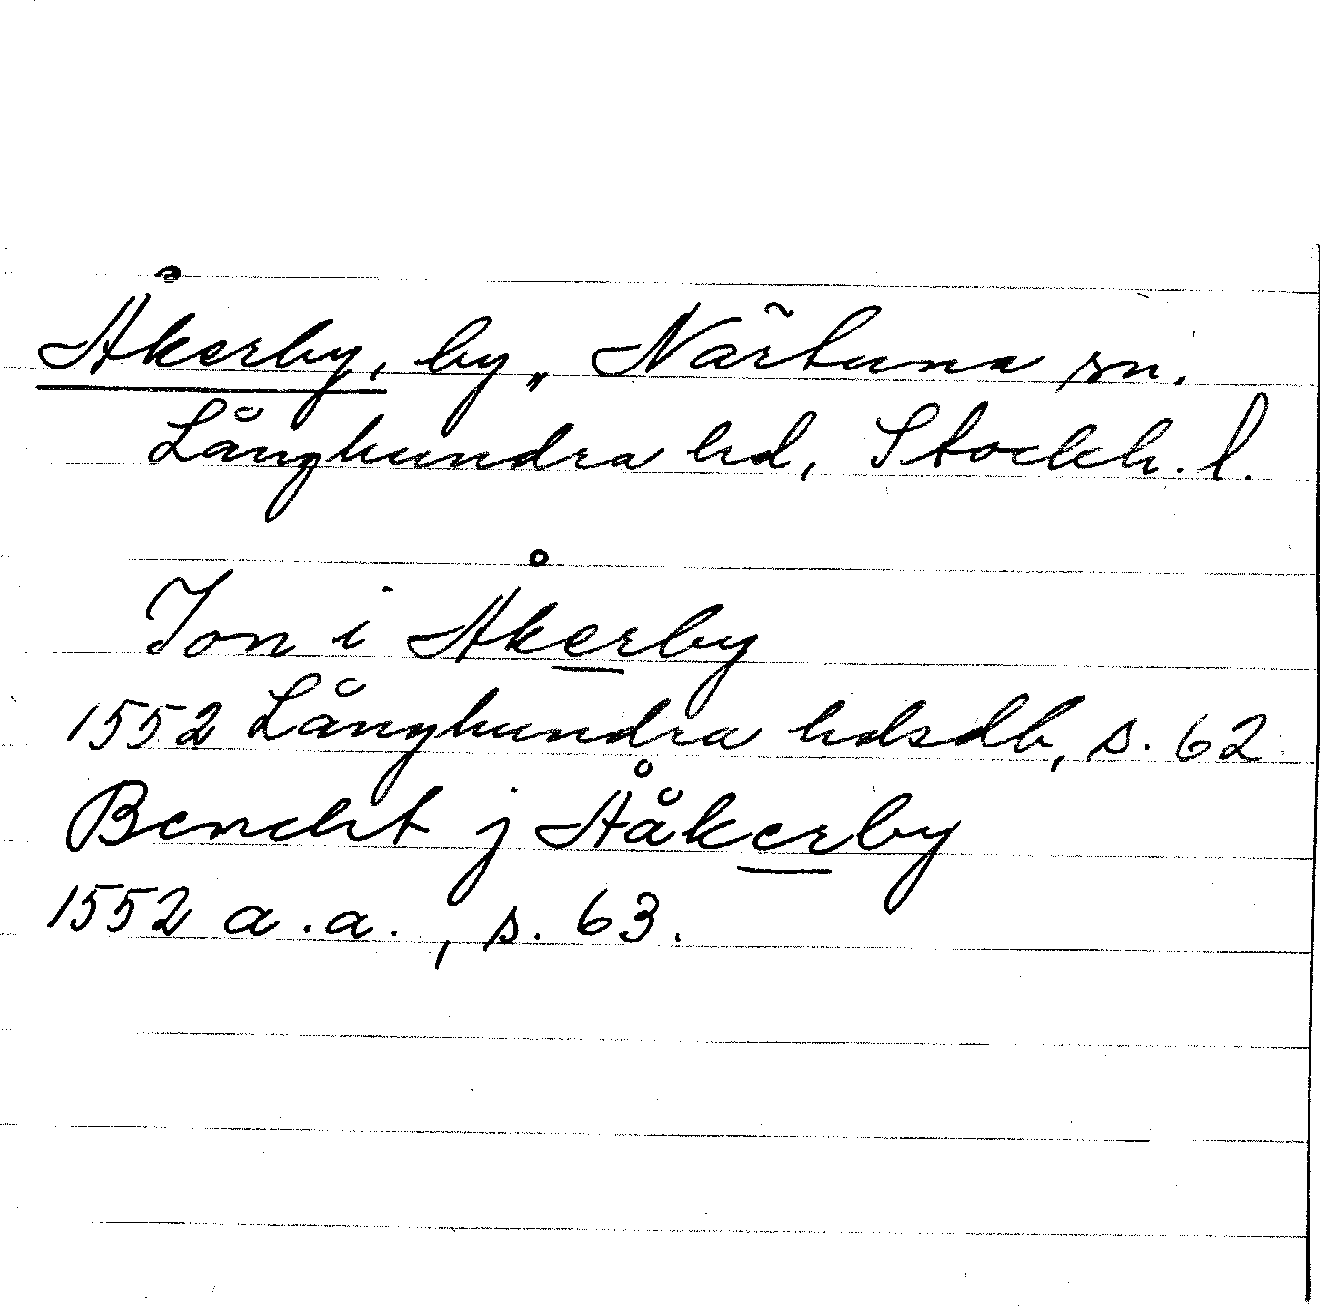 Åkerby, by, Närtuna sn.
Långhundra hd, Stockh. l.
Jon i Åkerby
1552 Långhundra hdsdb, s. 62
Bencht j Ååkerby
1552 a.a., s. 63.